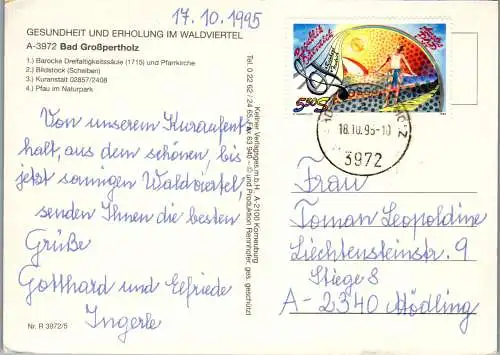 17.10.1995
GESUNDHEIT UND ERHOLUNG IM WALDVIERTEL
A-3972 Bad Großpertholz
1.) Barocke Dreifaltigkeitssäule (1715) und Pfarrkirche
2.) Bildstock (Scheiben)
3.) Kuranstalt 02857/2408
4.) Pfau im Naturpark
Von unserem Kuraufent
halt, aus dem schönen, bis
jetzt sonnigen Waldviertel
senden Ihnen die besten
Grüße
Gotthard und Elfriede
Ingerle
Nr. R 3972/5
Kellner Verlagsges.m.b.H., A-2100 Korneuburg
Tel. 0 22 62 / 24 65,
© und Produktion Rennhofer, ges. geschützt
Republik
Österreich
5.50 S
18.10.95-10
3972
Frau
Toman Leopoldine
Liechtensteinstr. 9
Stiege 8
A-2340 Mödling